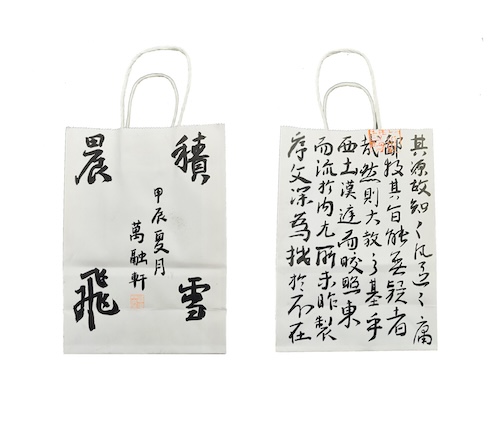 積雪
晨飛
甲辰夏月
萬融軒
其源故知
鄙投其旨能無疑者
哉然則大教之基乎
西土漢庭而皎照東
而流於內尤所未昨製
序文深為拙於不在